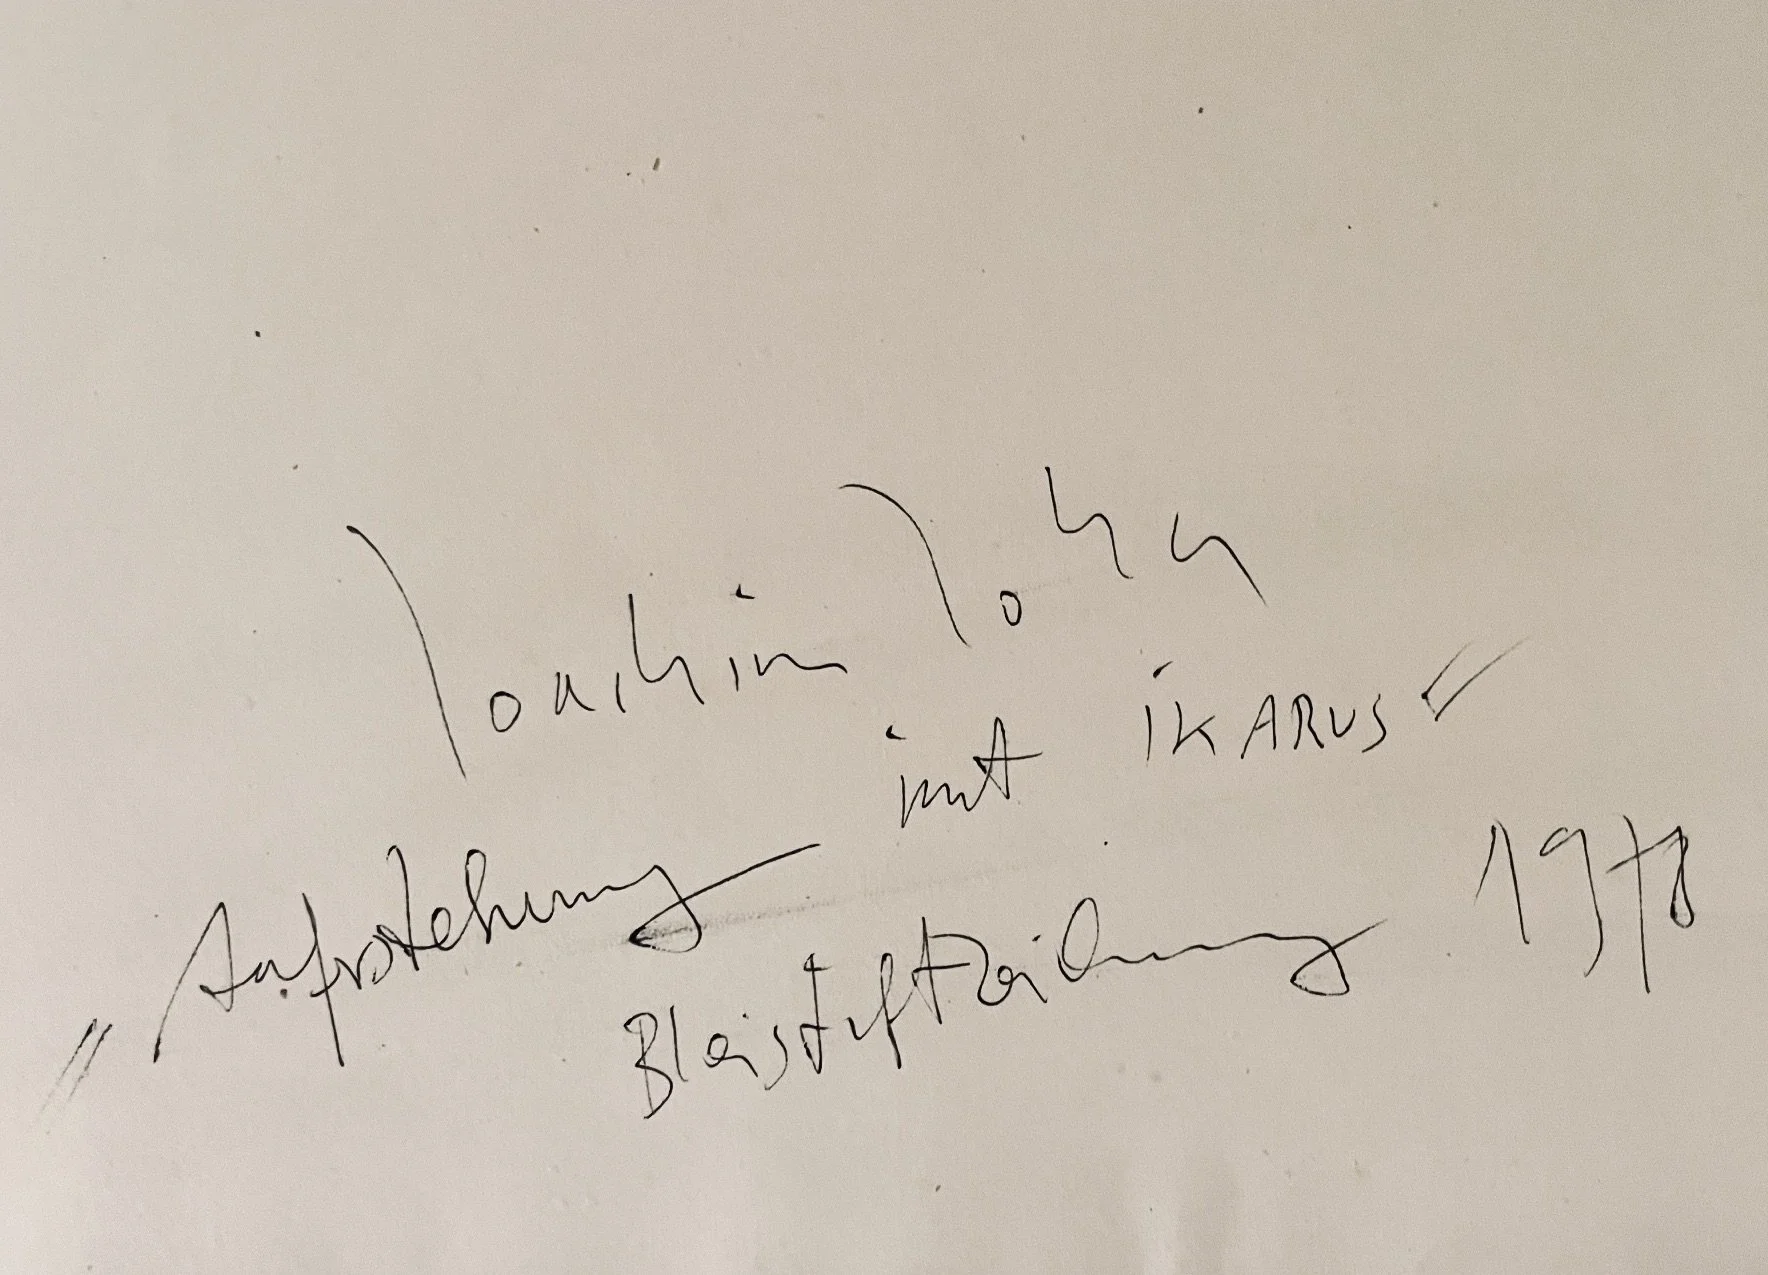 Joachim John
"Auferstehung mit IKARUS"
Bleistiftzeichnung 1978